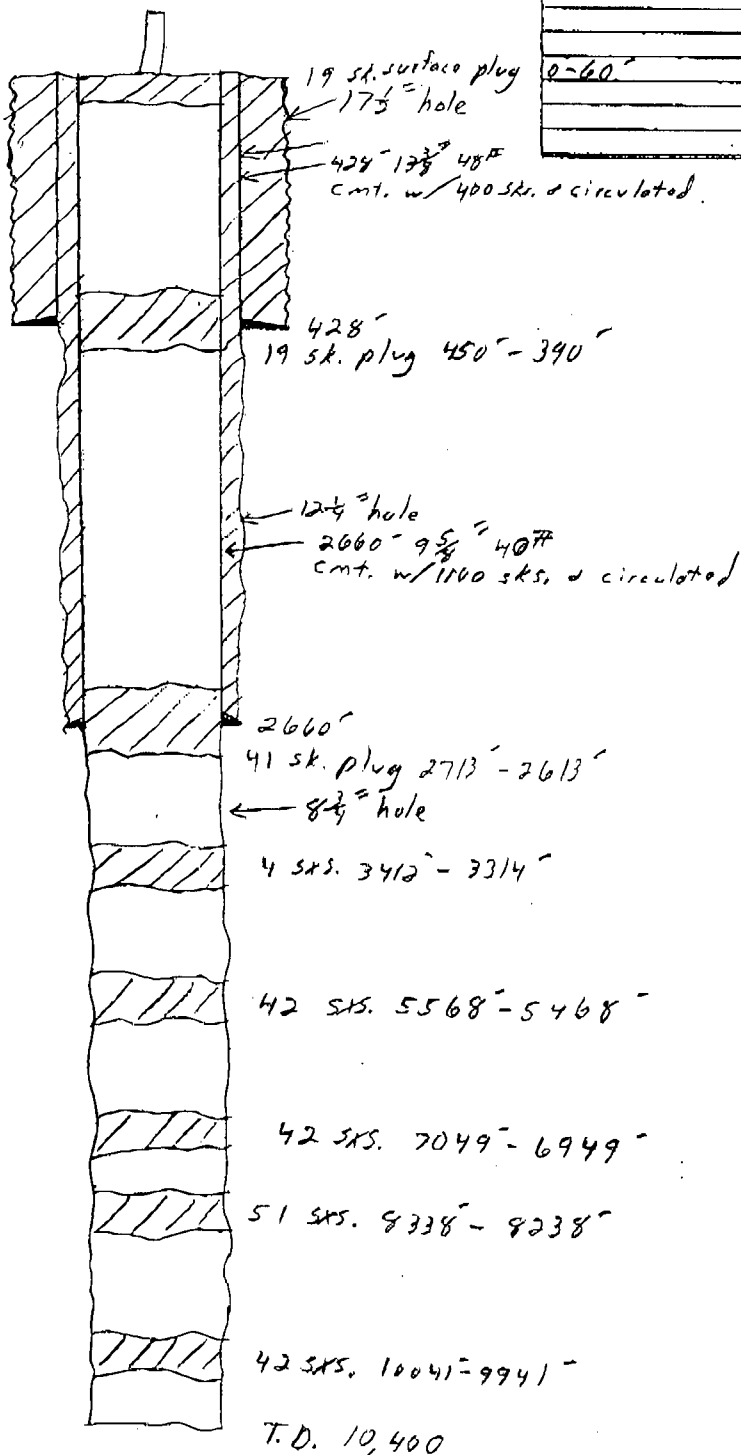 19 sk. surface plug 0-60'
17 1/2" hole
428' 13 3/8" 48#
cmt. w/ 400 sks. & circulated.
428'
19 sk. plug 450' - 390'
12 1/4" hole
2660' 9 5/8" 40#
cmt. w/ 1100 sks. & circulated
2660'
41 sk. plug 2713' - 2613'
8 3/4" hole
4 sxs. 3412' - 3314'
42 sxs. 5568' - 5468'
42 sxs. 7049' - 6949'
51 sxs. 8338' - 8238'
42 sxs. 10041' - 9941'
T.D. 10,400